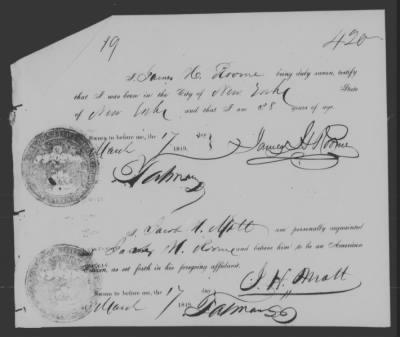 19
420
I, James H. Roome being duly sworn, testify
that I was born in the City of New York State
of New York and that I am 28 years of age.
Sworn to before me, the 17 day
March 1849.
James H Roome
I, Jacob H. Mott am personally acquainted
and James H. Roome and believe him to be an American
Citizen, as set forth in his foregoing affidavit.
J. H. Mott
Sworn to before me, the 17 day
March 1849